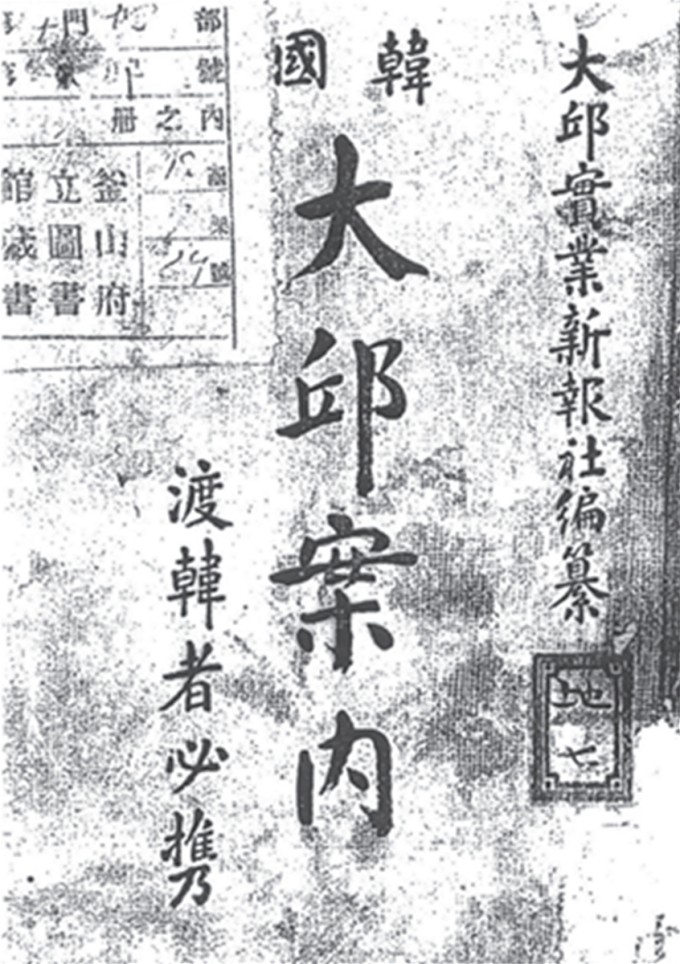 大邱實業新報社编纂
地七
韓國
大邱案内
渡韓者必携
部 門
號
内之册
號
24
釜山府
立圖書
館藏書